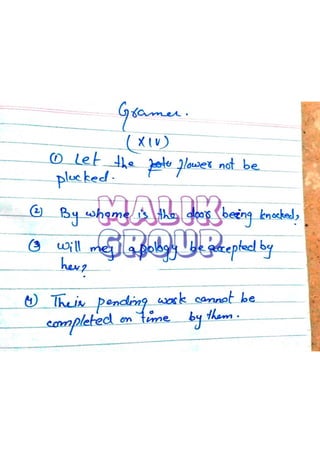 Gramer.
(XIV)
① Let the flower not be
plucked.
MALIK
② By whome is the door being knocked,
③ will my apology be accepted by
GROUP
her?
④ Their pending work cannot be
completed on time by them.